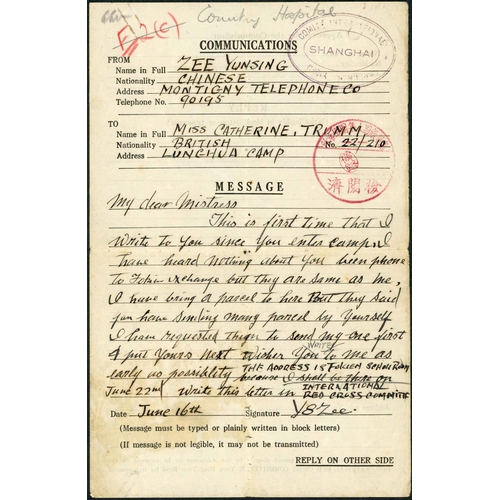 Country Hospital
F.2(c)
COMMUNICATIONS
SHANGHAI
FROM
Name in Full ZEE YUNSING
Nationality CHINESE
Address MONTIGNY TELEPHONE CO
Telephone No. 90195
TO
Name in Full MISS CATHERINE, TRUMM
Nationality BRITISH No. 22/210
Address LUNGHUA CAMP
濟閱檢
MESSAGE
My dear Mistress
This is first time that I
write to You since You enter camp, I
have heard nothing about You been phone
to exchange but they are same as me,
I have bring a parcel to here But they said
you have sending many parcel by Yourself
I have requested them to send my one first
& put Yours next Wisher You WRITE to me as
early as possibility THE ADDRESS IS SCHOOL ROOM
because I shall be there on
June 22nd write this letter in INTERNATIONAL
RED CROSS COMMITTE
Date June 16th Signature Y.S. Zee
(Message must be typed or plainly written in block letters)
(If message is not legible, it may not be transmitted)
REPLY ON OTHER SIDE